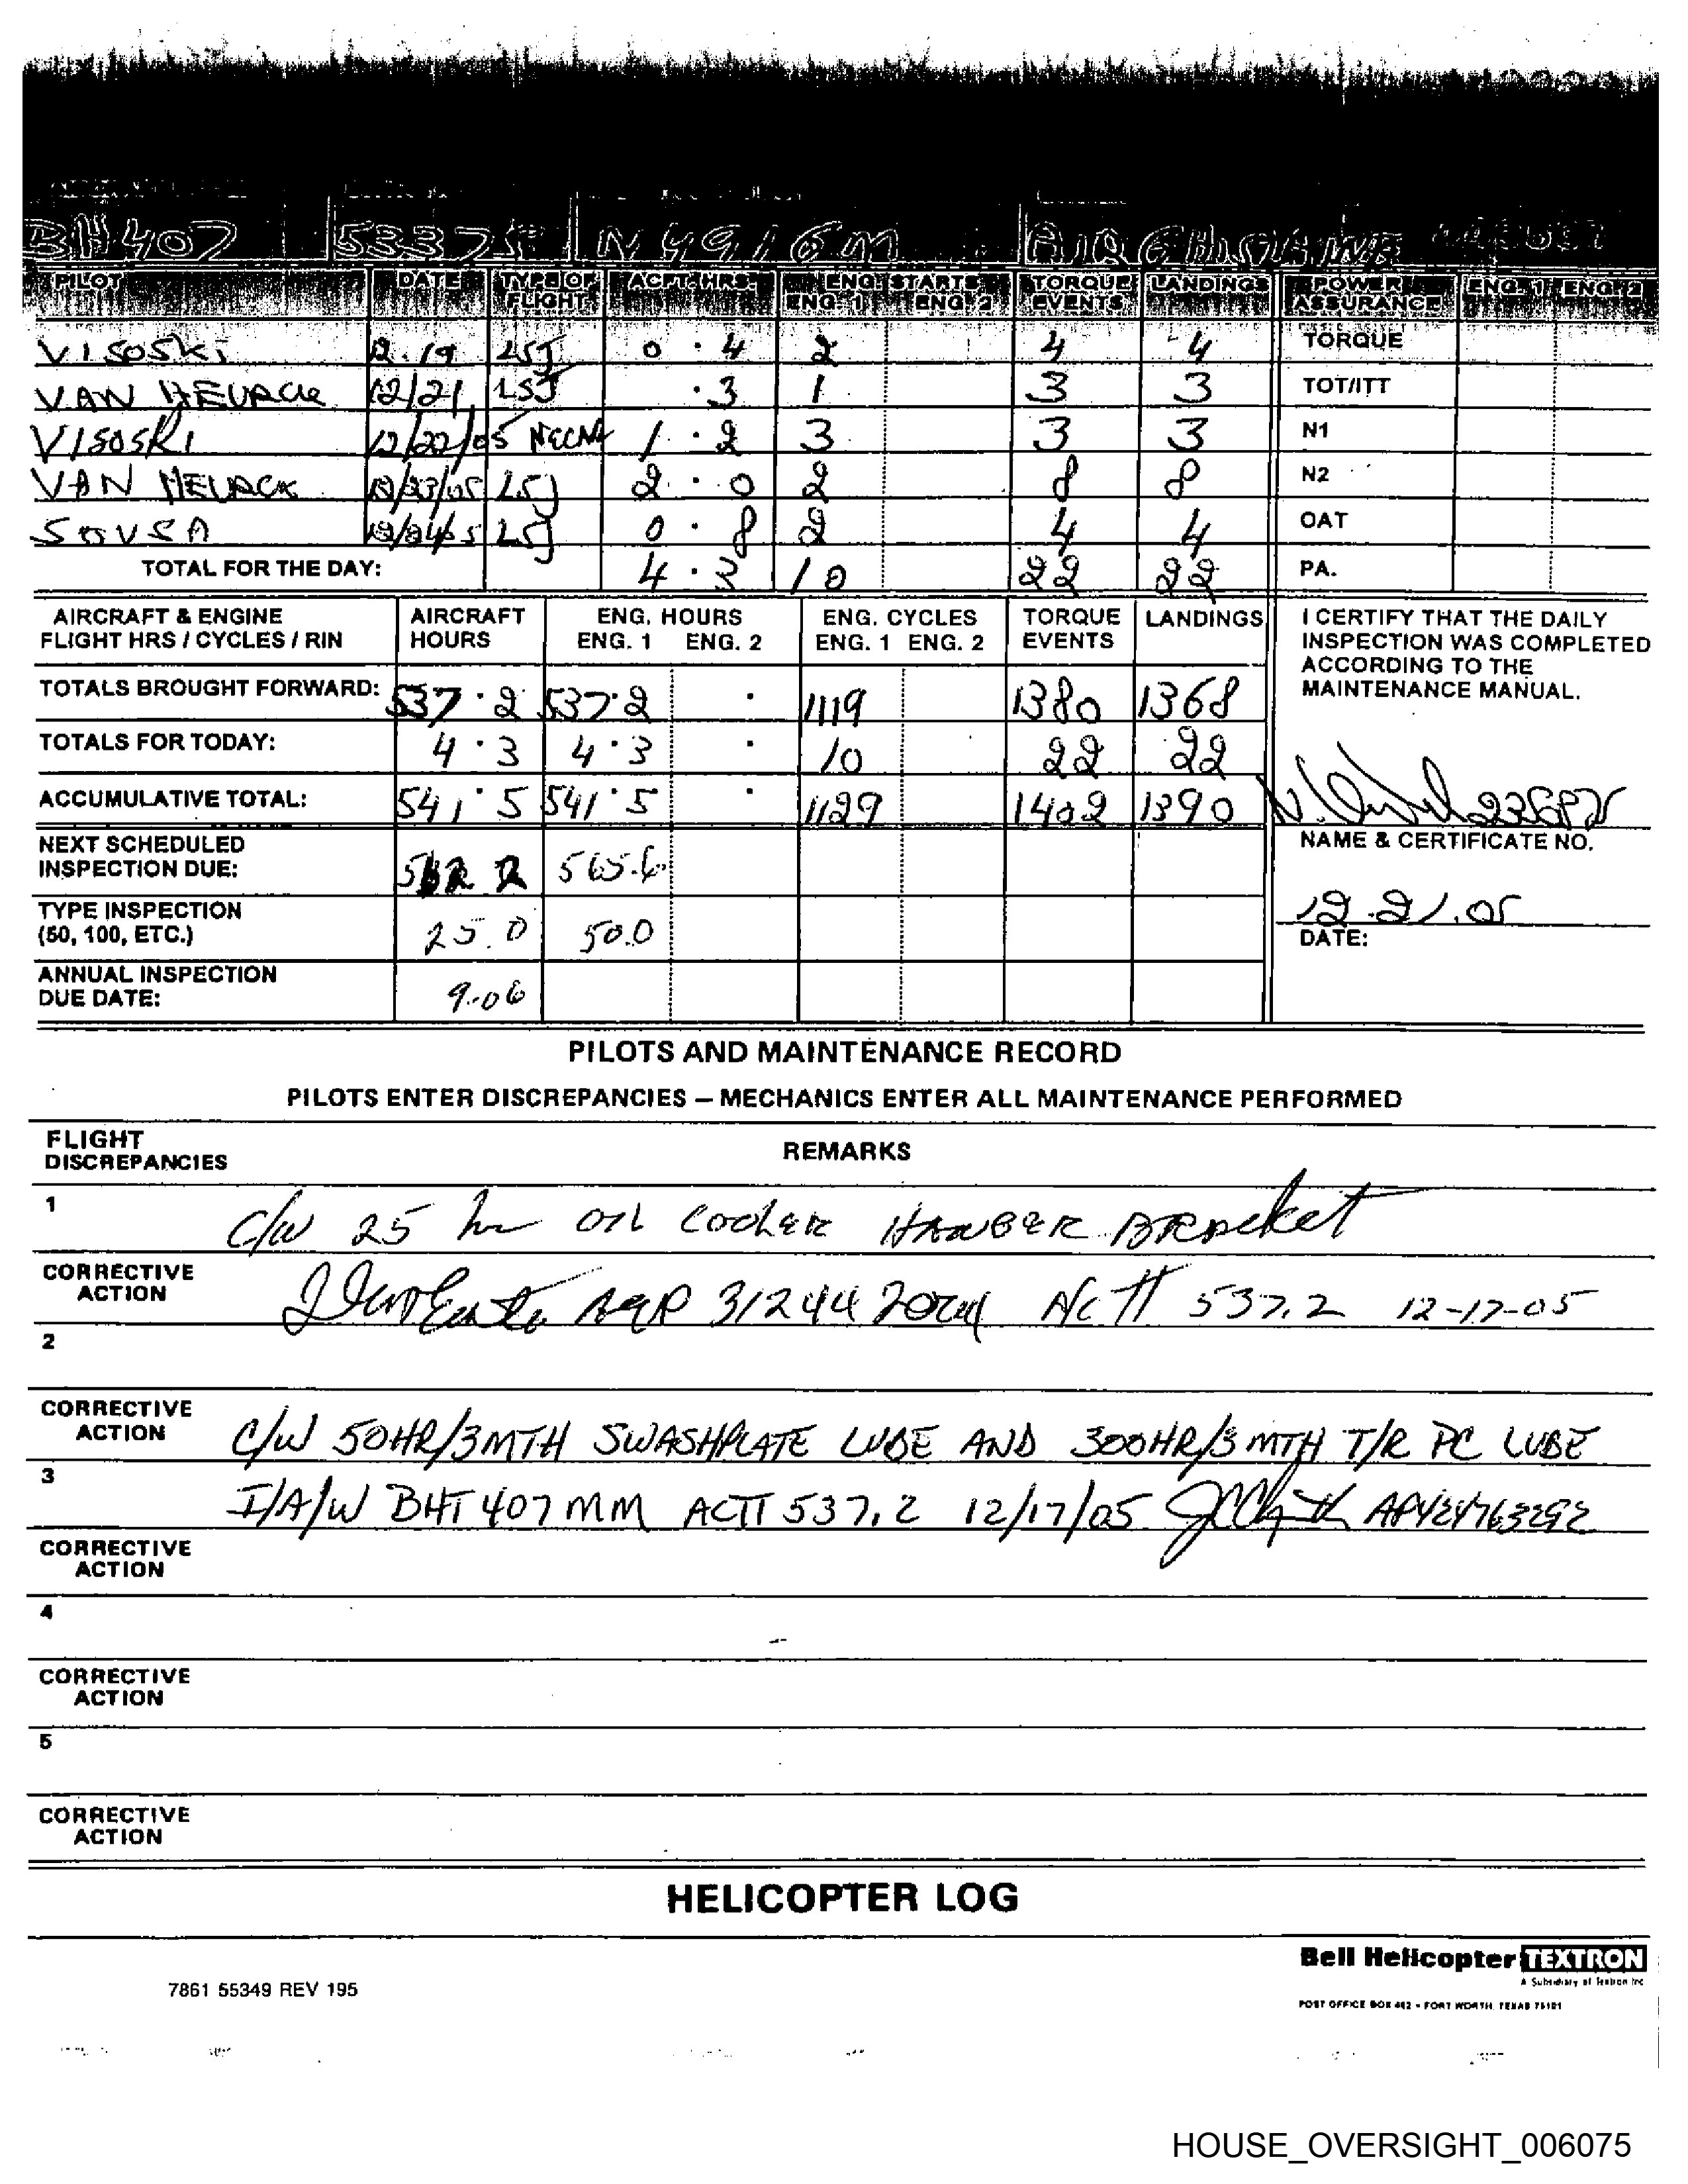 BH407 53375 N491GM AIR GHISLAINE
PILOT DATE TYPE OF FLIGHT ACFT. HRS. ENG. STARTS ENG. 1 ENG. 2 TORQUE EVENTS LANDINGS POWER ASSURANCE ENG. 1 ENG. 2
VISOSKI 12.19 LSJ 0.4 2 4 4 TORQUE
VAN 12/21 LSJ .3 1 3 3 TOT/ITT
VISOSKI 12/22/05 1.2 3 3 3 N1
VAN 12/23/05 LSJ 2.0 2 8 8 N2
SOUSA LSJ 0.8 2 4 4 OAT
TOTAL FOR THE DAY: 4.3 10 22 22 PA.
AIRCRAFT & ENGINE FLIGHT HRS / CYCLES / RIN AIRCRAFT HOURS ENG. HOURS ENG. 1 ENG. 2 ENG. CYCLES ENG. 1 ENG. 2 TORQUE EVENTS LANDINGS
I CERTIFY THAT THE DAILY
INSPECTION WAS COMPLETED
ACCORDING TO THE
MAINTENANCE MANUAL.
TOTALS BROUGHT FORWARD: 537.2 537.2 . 1119 1380 1368
TOTALS FOR TODAY: 4.3 4.3 . 10 22 22
ACCUMULATIVE TOTAL: 541.5 541.5 . 1129 1402 1390
NAME & CERTIFICATE NO.
NEXT SCHEDULED
INSPECTION DUE: 565.6
TYPE INSPECTION
(50, 100, ETC.) 25.0 50.0
12.21.05
DATE:
ANNUAL INSPECTION
DUE DATE: 9-06
PILOTS AND MAINTENANCE RECORD
PILOTS ENTER DISCREPANCIES – MECHANICS ENTER ALL MAINTENANCE PERFORMED
FLIGHT
DISCREPANCIES
REMARKS
1 C/W 25 hr OIL COOLER HANGER BRACKET
CORRECTIVE
ACTION A&P ACTT 537.2 12-17-05
2
CORRECTIVE
ACTION C/W 50HR/3MTH SWASHPLATE LUBE AND 300HR/3MTH T/R PC LUBE
3 I/A/W BHT 407 MM ACTT 537.2 12/17/05
CORRECTIVE
ACTION
4
CORRECTIVE
ACTION
5
CORRECTIVE
ACTION
HELICOPTER LOG
Bell Helicopter TEXTRON
A Subsidiary of Textron Inc
7861 55349 REV 195
POST OFFICE BOX 482 • FORT WORTH, TEXAS 76101
HOUSE_OVERSIGHT_006075